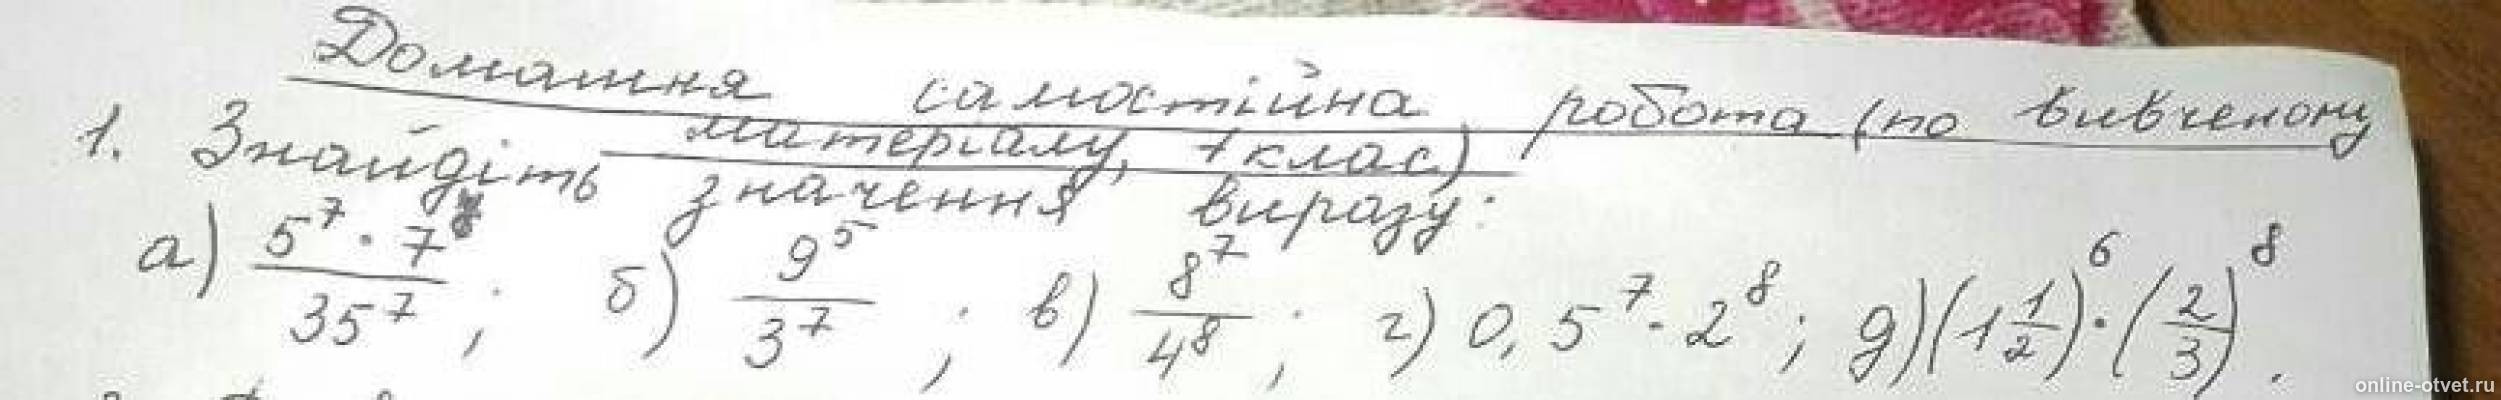 Домашня самостійна робота (по вивченому
матеріалу, 7 клас)
1. Знайдіть значення виразу:
а) 5^7 · 7^8 / 35^7 ; б) 9^5 / 3^7 ; в) 8^7 / 4^8 ; г) 0,5^7 · 2^8 ; д) (1 1/2)^6 · (2/3)^8 .
online-otvet.ru